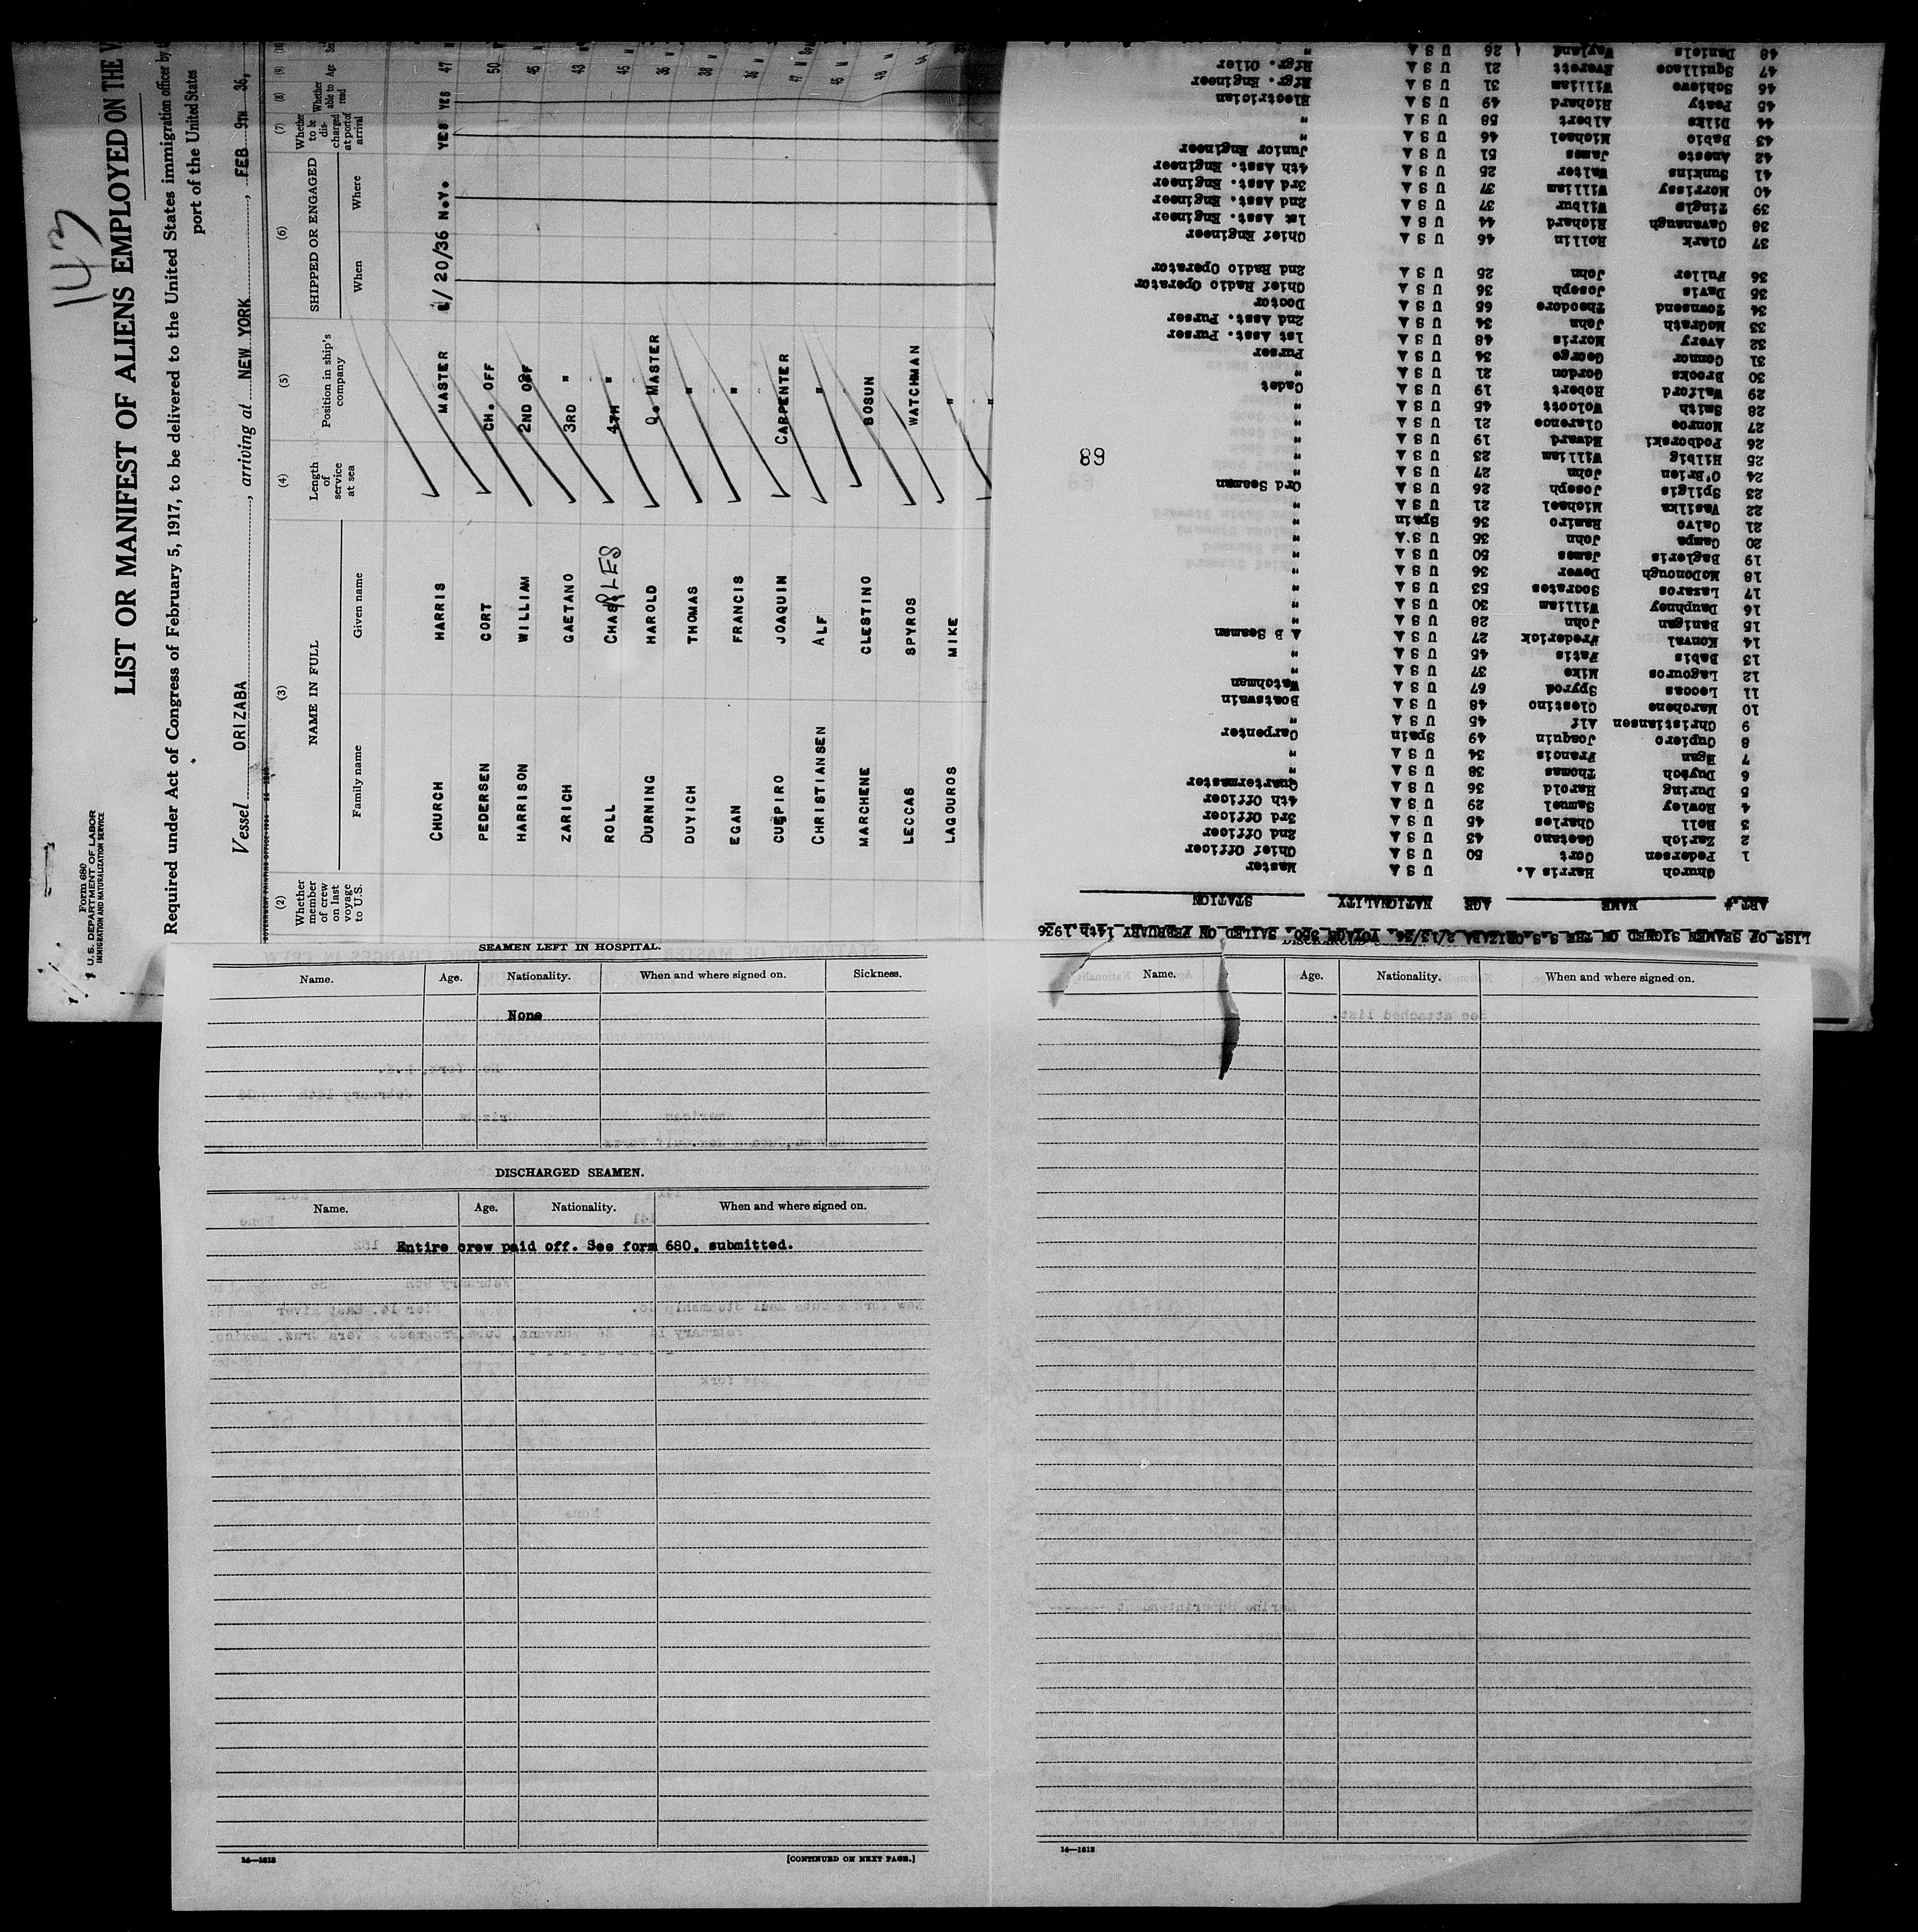 143
Form 680
U.S. DEPARTMENT OF LABOR
IMMIGRATION AND NATURALIZATION SERVICE
LIST OR MANIFEST OF ALIENS EMPLOYED ON THE V
Required under Act of Congress of February 5, 1917, to be delivered to the United States immigration officer by
port of the United States
Vessel ORIZABA, arriving at NEW YORK, FEB 9TH 36,
(2) (3) (4) (5) (6) (7) (8) (9) (10)
Whether member of crew on last voyage to U.S.
NAME IN FULL
Family name Given name
Length of service at sea
Position in ship's company
SHIPPED OR ENGAGED
When Where
Whether to be discharged at port of arrival
Whether able to read
Age
CHURCH HARRIS MASTER 1/20/36 N.Y. YES YES 47
PEDERSEN CORT CH. OFF 50
HARRISON WILLIAM 2ND OFF 45
ZARICH GAETANO 3RD " 43
ROLL CHARLES 4TH " 45
DURNING HAROLD Q. MASTER 36
DUYICH THOMAS " 38
EGAN FRANCIS " 36
CUEPIRO JOAQUIN CARPENTER 47
CHRISTIANSEN ALF " 45
MARCHENE CLESTINO BOSUN 48
LECCAS SPYROS WATCHMAN
LAGOUROS MIKE "
LIST OF SEAMEN SIGNED ON THE S.S.ORIZABA 2/13/36. VOYAGE 320. SAILED ON FEBRUARY 14th,1936
ART.# NAME AGE NATIONALITY STATION
Church Harris A. U S A Master
1 Pedersen Cort 50 U S A Chief Officer
2 Zarich Gaetano 43 U S A 2nd Officer
3 Roll Charles 45 U S A 3rd Officer
4 Rowley Samuel 29 U S A 4th Officer
5 During Harold 36 U S A Quartermaster
6 Duytch Thomas 38 U S A "
7 Egan Francis 34 U S A "
8 Cupiero Joaquin 49 Spain Carpenter
9 Christiansen Alf 45 U S A "
10 Marchene Clestino 48 U S A Boatswain
11 Leccas Spyrod 67 U S A Watchman
12 Lagouros Mike 37 U S A "
13 Babis Fatis 45 U S A "
14 Konval Frederick 27 U S A A B Seaman
15 Banigan John 28 U S A "
16 Dauphney William 30 U S A "
17 Lazaros Socrates 53 U S A "
18 McDonough Dewer 36 U S A "
19 Bagleris James 50 U S A "
20 Campa John 35 U S A "
21 Calvo Ramiro 36 Spain "
22 Vasilka Michael 21 U S A "
23 Spilgis Joseph 26 U S A Ord Seaman
24 O'Brien John 27 U S A "
25 Hilbig William 23 U S A "
26 Podborski Edward 19 U S A "
27 Monroe Clarence 21 U S A "
28 Smith Wolcott 45 U S A "
29 Walford Robert 19 U S A Cadet
30 Brooks Gordon 21 U S A "
31 Connor George 34 U S A Purser
32 Avery Morris 48 U S A 1st Asst. Purser
33 McGrath John 34 U S A 2nd Asst. Purser
34 Townsend Theodore 65 U S A Doctor
35 Davis Joseph 36 U S A Chief Radio Operator
36 Fuller John 25 U S A 2nd Radio Operator
37 Clark Rollin 46 U S A Chief Engineer
38 Cavanaugh Richard 44 U S A 1st Asst. Engineer
39 Tingle Wilbur 37 U S A 2nd Asst. Engineer
40 Morrissy William 37 U S A 3rd Asst. Engineer
41 Sunkins Walter 25 U S A 4th Asst. Engineer
42 Aneste James 51 U S A Junior Engineer
43 Babio Michael 46 U S A "
44 Dilks Albert 58 U S A "
45 Peaty Richard 49 U S A Electrician
46 Schiewe William 31 U S A Rfgr. Engineer
47 Squillace Everett 21 U S A Rfgr. Oiler
48 Daniels Wayland 26 U S A "
89
SEAMEN LEFT IN HOSPITAL.
Name. Age. Nationality. When and where signed on. Sickness.
None
DISCHARGED SEAMEN.
Name. Age. Nationality. When and where signed on.
Entire crew paid off. See form 680, submitted.
14—1613 [CONTINUED ON NEXT PAGE.]
Name. Age. Nationality. When and where signed on.
See attached list.
14—1613